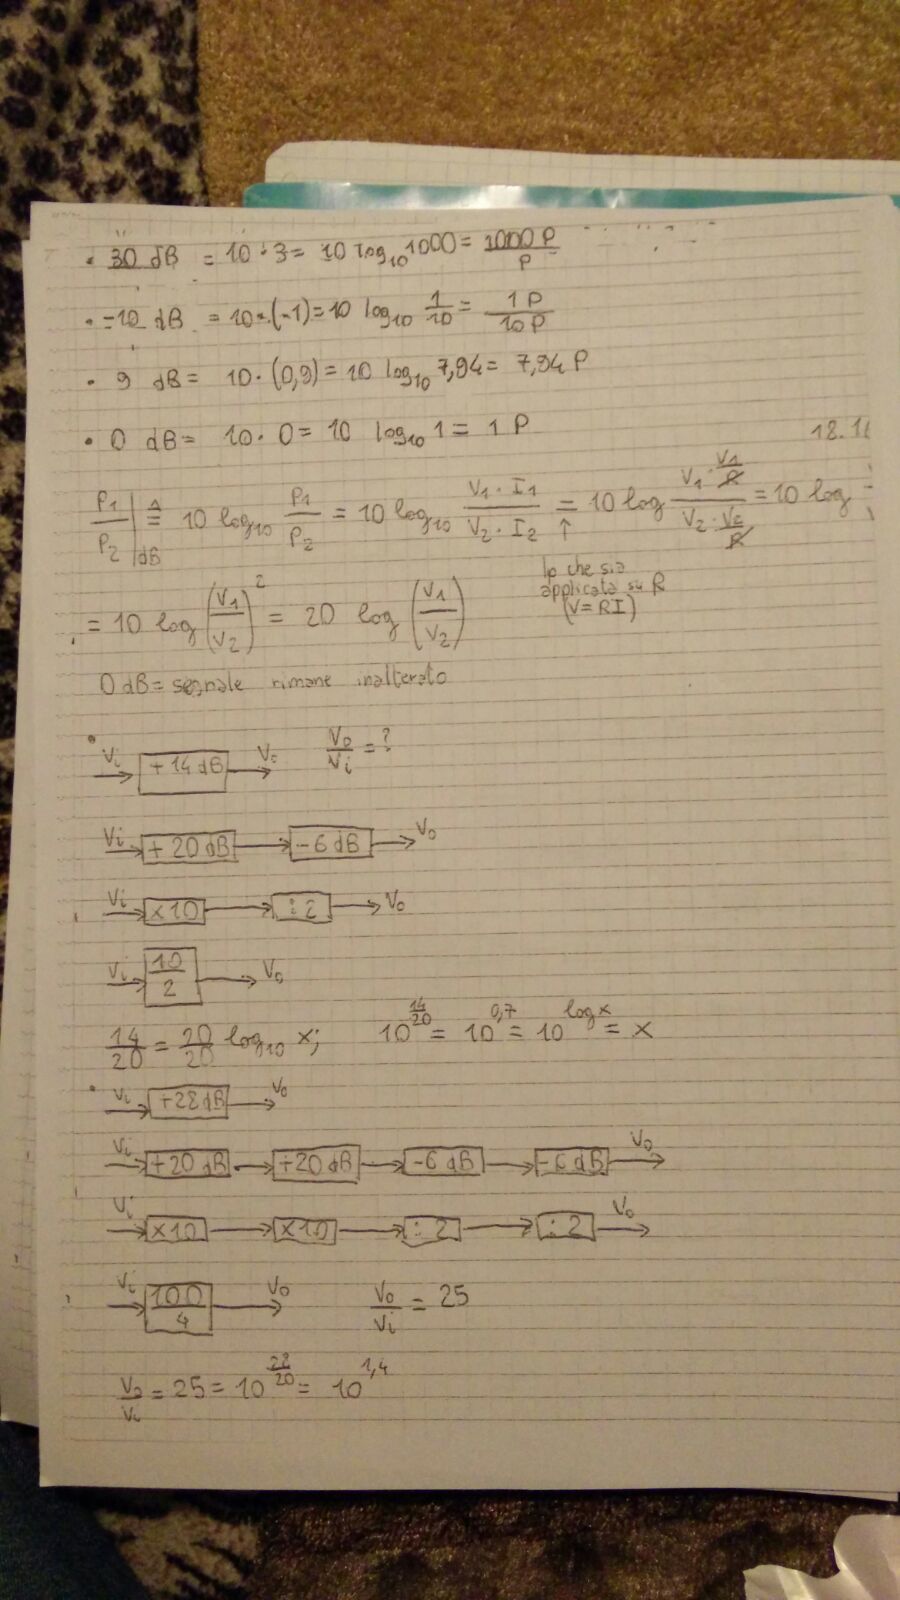 • 30 dB = 10 · 3 = 10 log₁₀ 1000 = 1000 P / P
• -10 dB = 10 · (-1) = 10 log₁₀ 1/10 = 1 P / 10 P
• 9 dB = 10 · (0,9) = 10 log₁₀ 7,94 = 7,94 P
• 0 dB = 10 · 0 = 10 log₁₀ 1 = 1 P
P₁/P₂ |dB ≙ 10 log₁₀ P₁/P₂ = 10 log₁₀ (V₁ · I₁)/(V₂ · I₂) = 10 log (V₁ · V₁/R)/(V₂ · V₂/R) = 10 log
↑
Ip che sia
applicata su R
(V = RI)
= 10 log (V₁/V₂)² = 20 log (V₁/V₂)
0 dB = segnale rimane inalterato
• Vi → +14 dB → V₀ V₀/Vi = ?
Vi → +20 dB → -6 dB → V₀
Vi → ×10 → :2 → V₀
Vi → 10/2 → V₀
14/20 = 20/20 log₁₀ x; 10^(14/20) = 10^0,7 = 10^(log x) = x
• Vi → +28 dB → V₀
Vi → +20 dB → +20 dB → -6 dB → -6 dB → V₀
Vi → ×10 → ×10 → :2 → :2 → V₀
Vi → 100/4 → V₀ V₀/Vi = 25
V₀/Vi = 25 = 10^(28/20) = 10^1,4